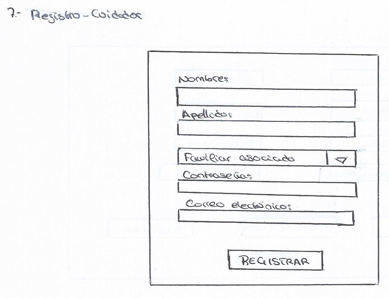 7.- Registro - Cuidador
Nombres:
Apellidos:
Familiar asociado
Contraseña:
Correo electrónico:
REGISTRAR